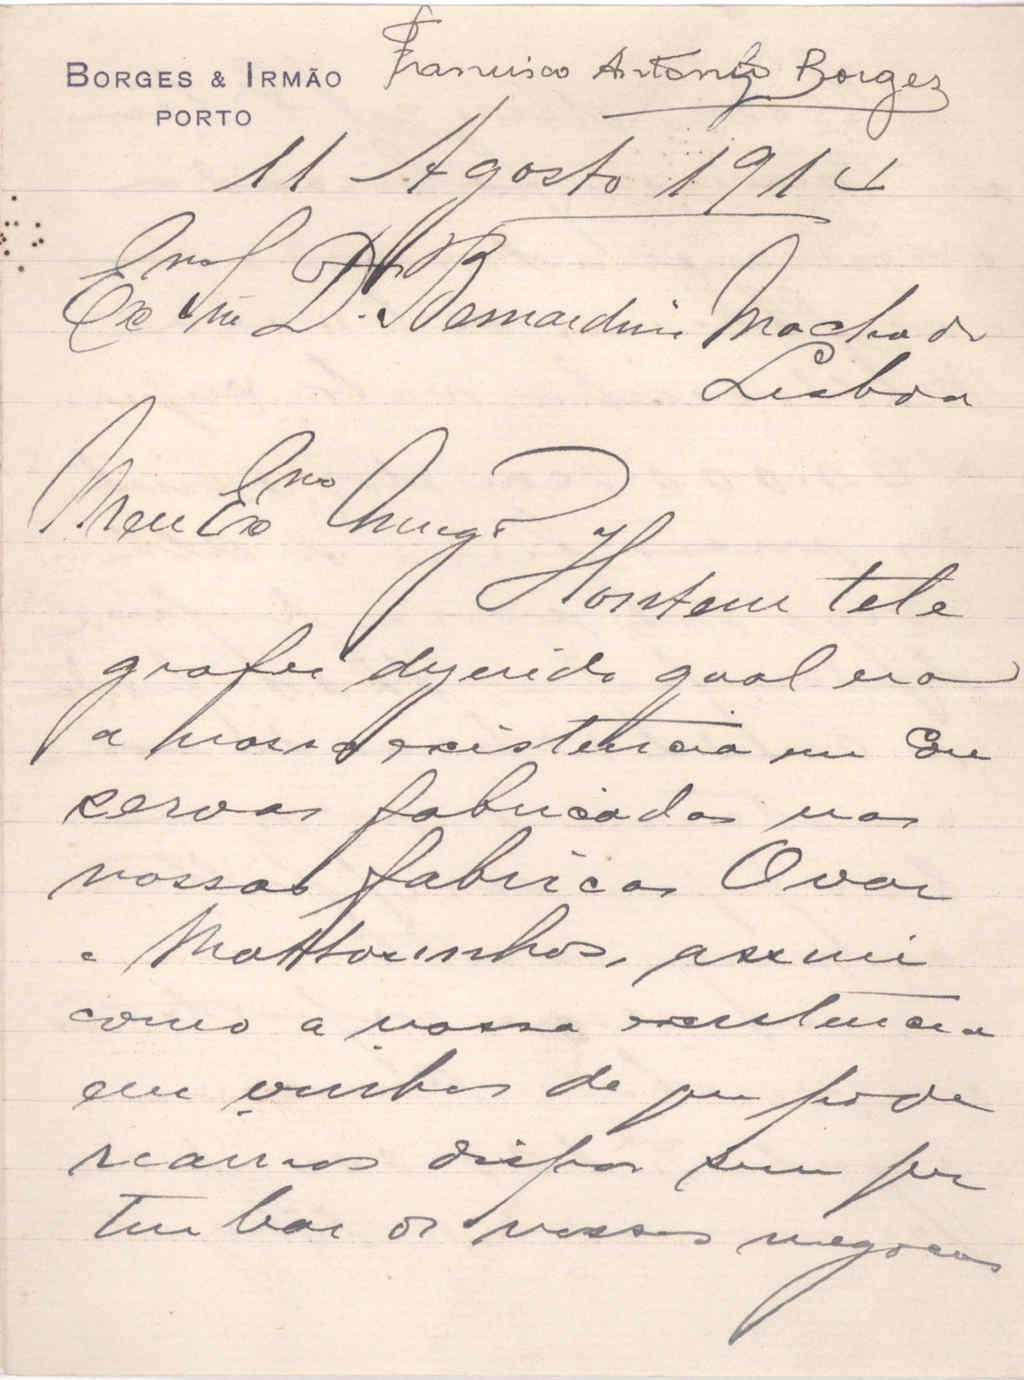 BORGES & IRMÃO
PORTO
Francisco Antonio Borges
11 Agosto 1914
Exmo Snr Dr. Bernardino Machado
Lisboa
Meu Exmo Amigo
Hontem tele
grafei dizendo qual era
a nossa existencia em Con
servas fabricadas nas
nossas fabricas Ovar
e Mattosinhos, assim
como a nossa existencia
em vinhos de que pode
reamos dispor sem per
turbar os nossos negocios